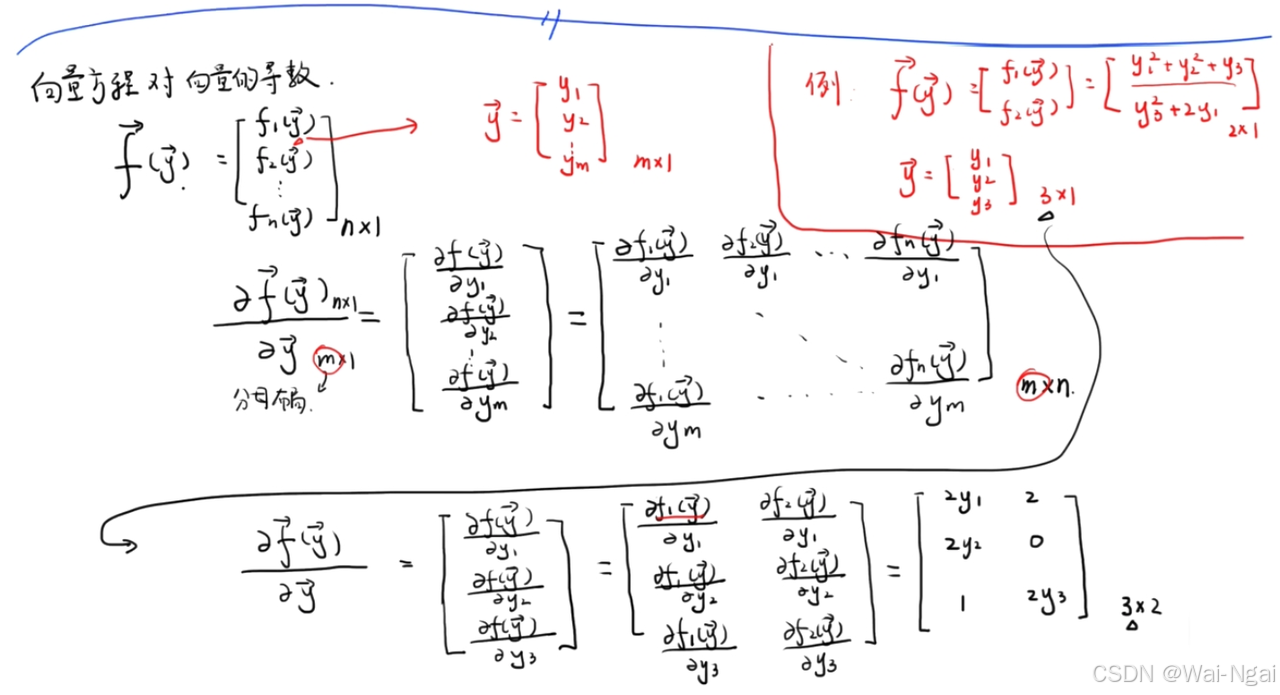 向量方程对向量的导数.
f⃗(y⃗) = [f₁(y⃗) f₂(y⃗) ⋮ fₙ(y⃗)] n×1
y⃗ = [y₁ y₂ ⋮ yₘ] m×1
例: f⃗(y⃗) = [f₁(y⃗) f₂(y⃗)] = [y₁²+y₂²+y₃ y₃²+2y₁] 2×1
y⃗ = [y₁ y₂ y₃] 3×1
∂f⃗(y⃗)n×1/∂y⃗ m×1 = [∂f(y⃗)/∂y₁ ∂f(y⃗)/∂y₂ ⋮ ∂f(y⃗)/∂yₘ] = [∂f₁(y⃗)/∂y₁ ∂f₂(y⃗)/∂y₁ ⋯ ∂fₙ(y⃗)/∂y₁ ⋮ ⋱ ∂f₁(y⃗)/∂yₘ ⋯ ∂fₙ(y⃗)/∂yₘ] m×n.
分母布局.
∂f⃗(y⃗)/∂y⃗ = [∂f(y⃗)/∂y₁ ∂f(y⃗)/∂y₂ ∂f(y⃗)/∂y₃] = [∂f₁(y⃗)/∂y₁ ∂f₂(y⃗)/∂y₁ ∂f₁(y⃗)/∂y₂ ∂f₂(y⃗)/∂y₂ ∂f₁(y⃗)/∂y₃ ∂f₂(y⃗)/∂y₃] = [2y₁ 2 2y₂ 0 1 2y₃] 3×2
CSDN @Wai-Ngai